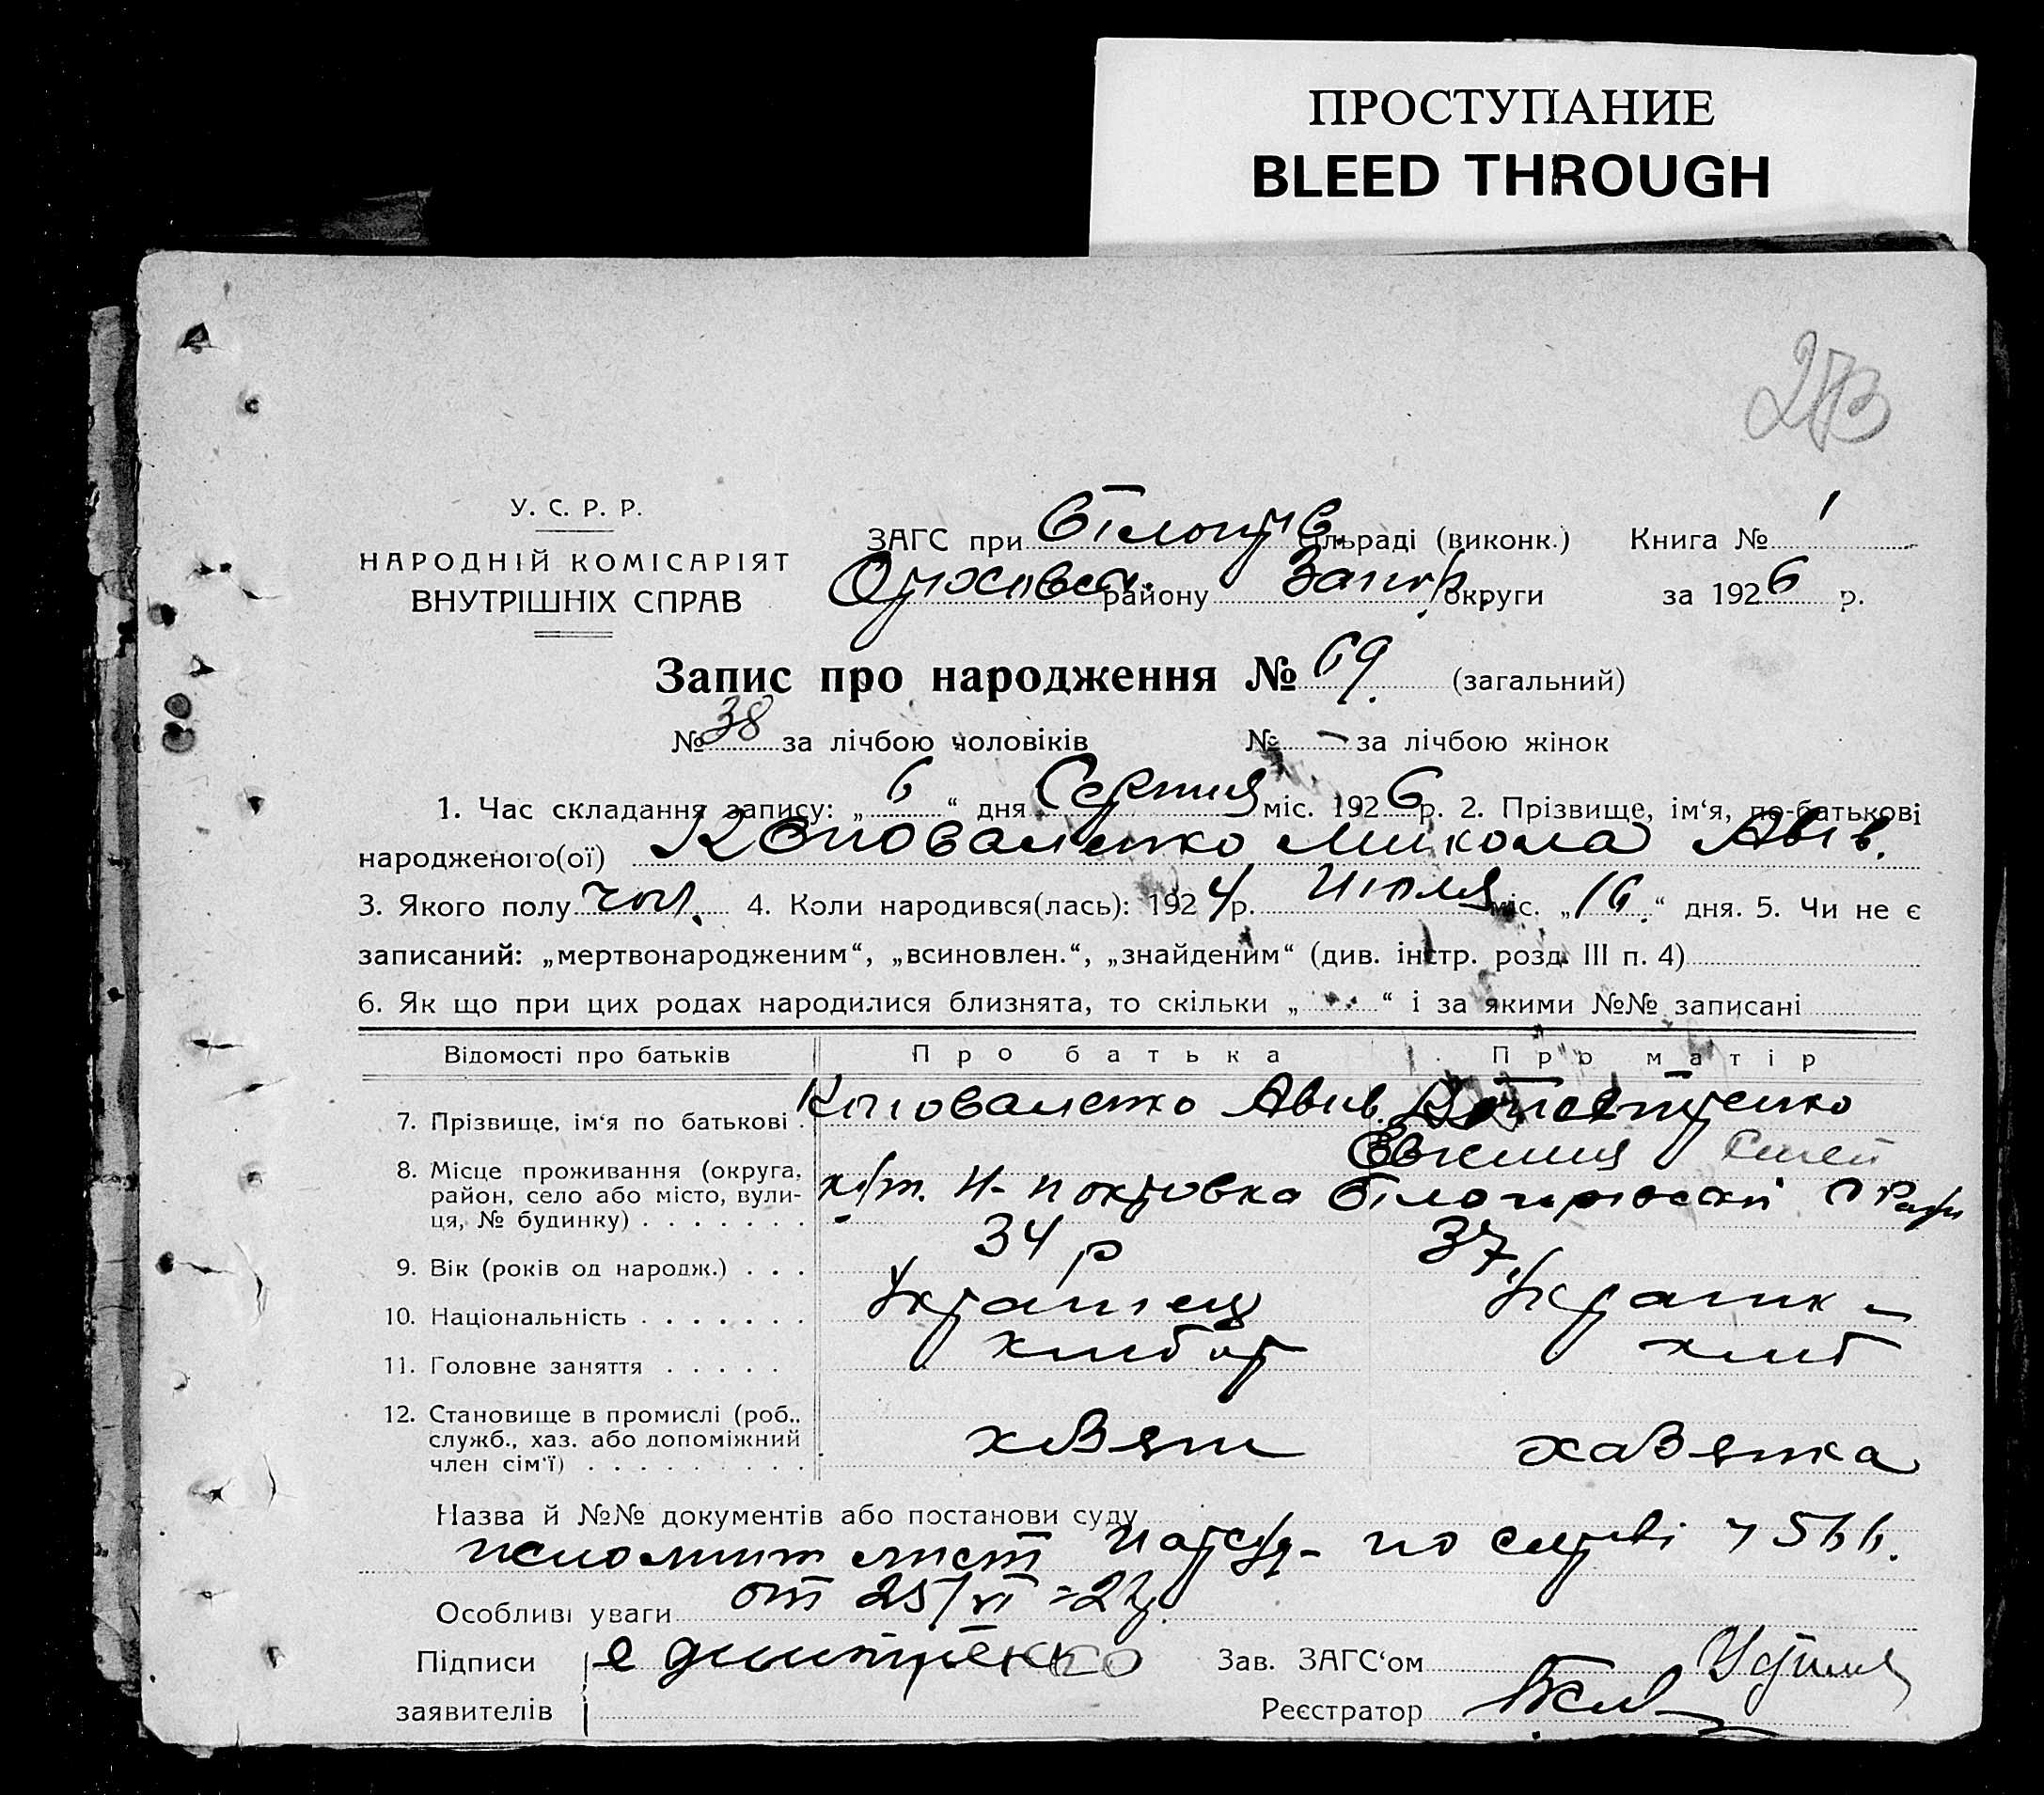 ПРОСТУПАНИЕ
BLEED THROUGH
273
У. С. Р. Р.
НАРОДНІЙ КОМІСАРІЯТ
ВНУТРІШНІХ СПРАВ
ЗАГС при Білогір. сільраді (виконк.) Книга № 1
Оріхівськ. району Запор. округи за 1926 р.
Запис про народження № 69. (загальний)
№ 38 за лічбою чоловіків № – за лічбою жінок
1. Час складання запису: „ 6 “ дня Серпня міс. 1926 р. 2. Прізвище, ім‘я, по-батькові
народженого(ої) Коноваленко Микола Авів.
3. Якого полу чол. 4. Коли народився(лась): 1924 р. Июля міс. „ 16. “ дня. 5. Чи не є
записаний: „мертвонародженим“, „всиновлен.“, „знайденим“ (див. інстр. розд. III п. 4)
6. Як що при цих родах народилися близнята, то скільки „ “ і за якими №№ записані
Відомості про батьків Про батька Про матір
7. Прізвище, ім‘я по батькові . Коноваленко Авив.
8. Місце проживання (округа,
район, село або місто, вули-
ця, № будинку) . . . . . . . хут. Н-Покровка
9. Вік (років од народж.) . . . 34 р 37
10. Національність . . . . . . . Українец Украинк-
11. Головне заняття . . . . . хлібор хліб
12. Становище в промислі (роб.,
служб., хаз. або допоміжний
член сім‘ї) . . . . . . . . . хазяин хазяйка
Назва й №№ документів або постанови суду
исполнит лист Нарсуд- по справі
Особливі уваги от 25/VI
Підписи Е Дмитрєнко Зав. ЗАГС‘ом
заявителів Реєстратор